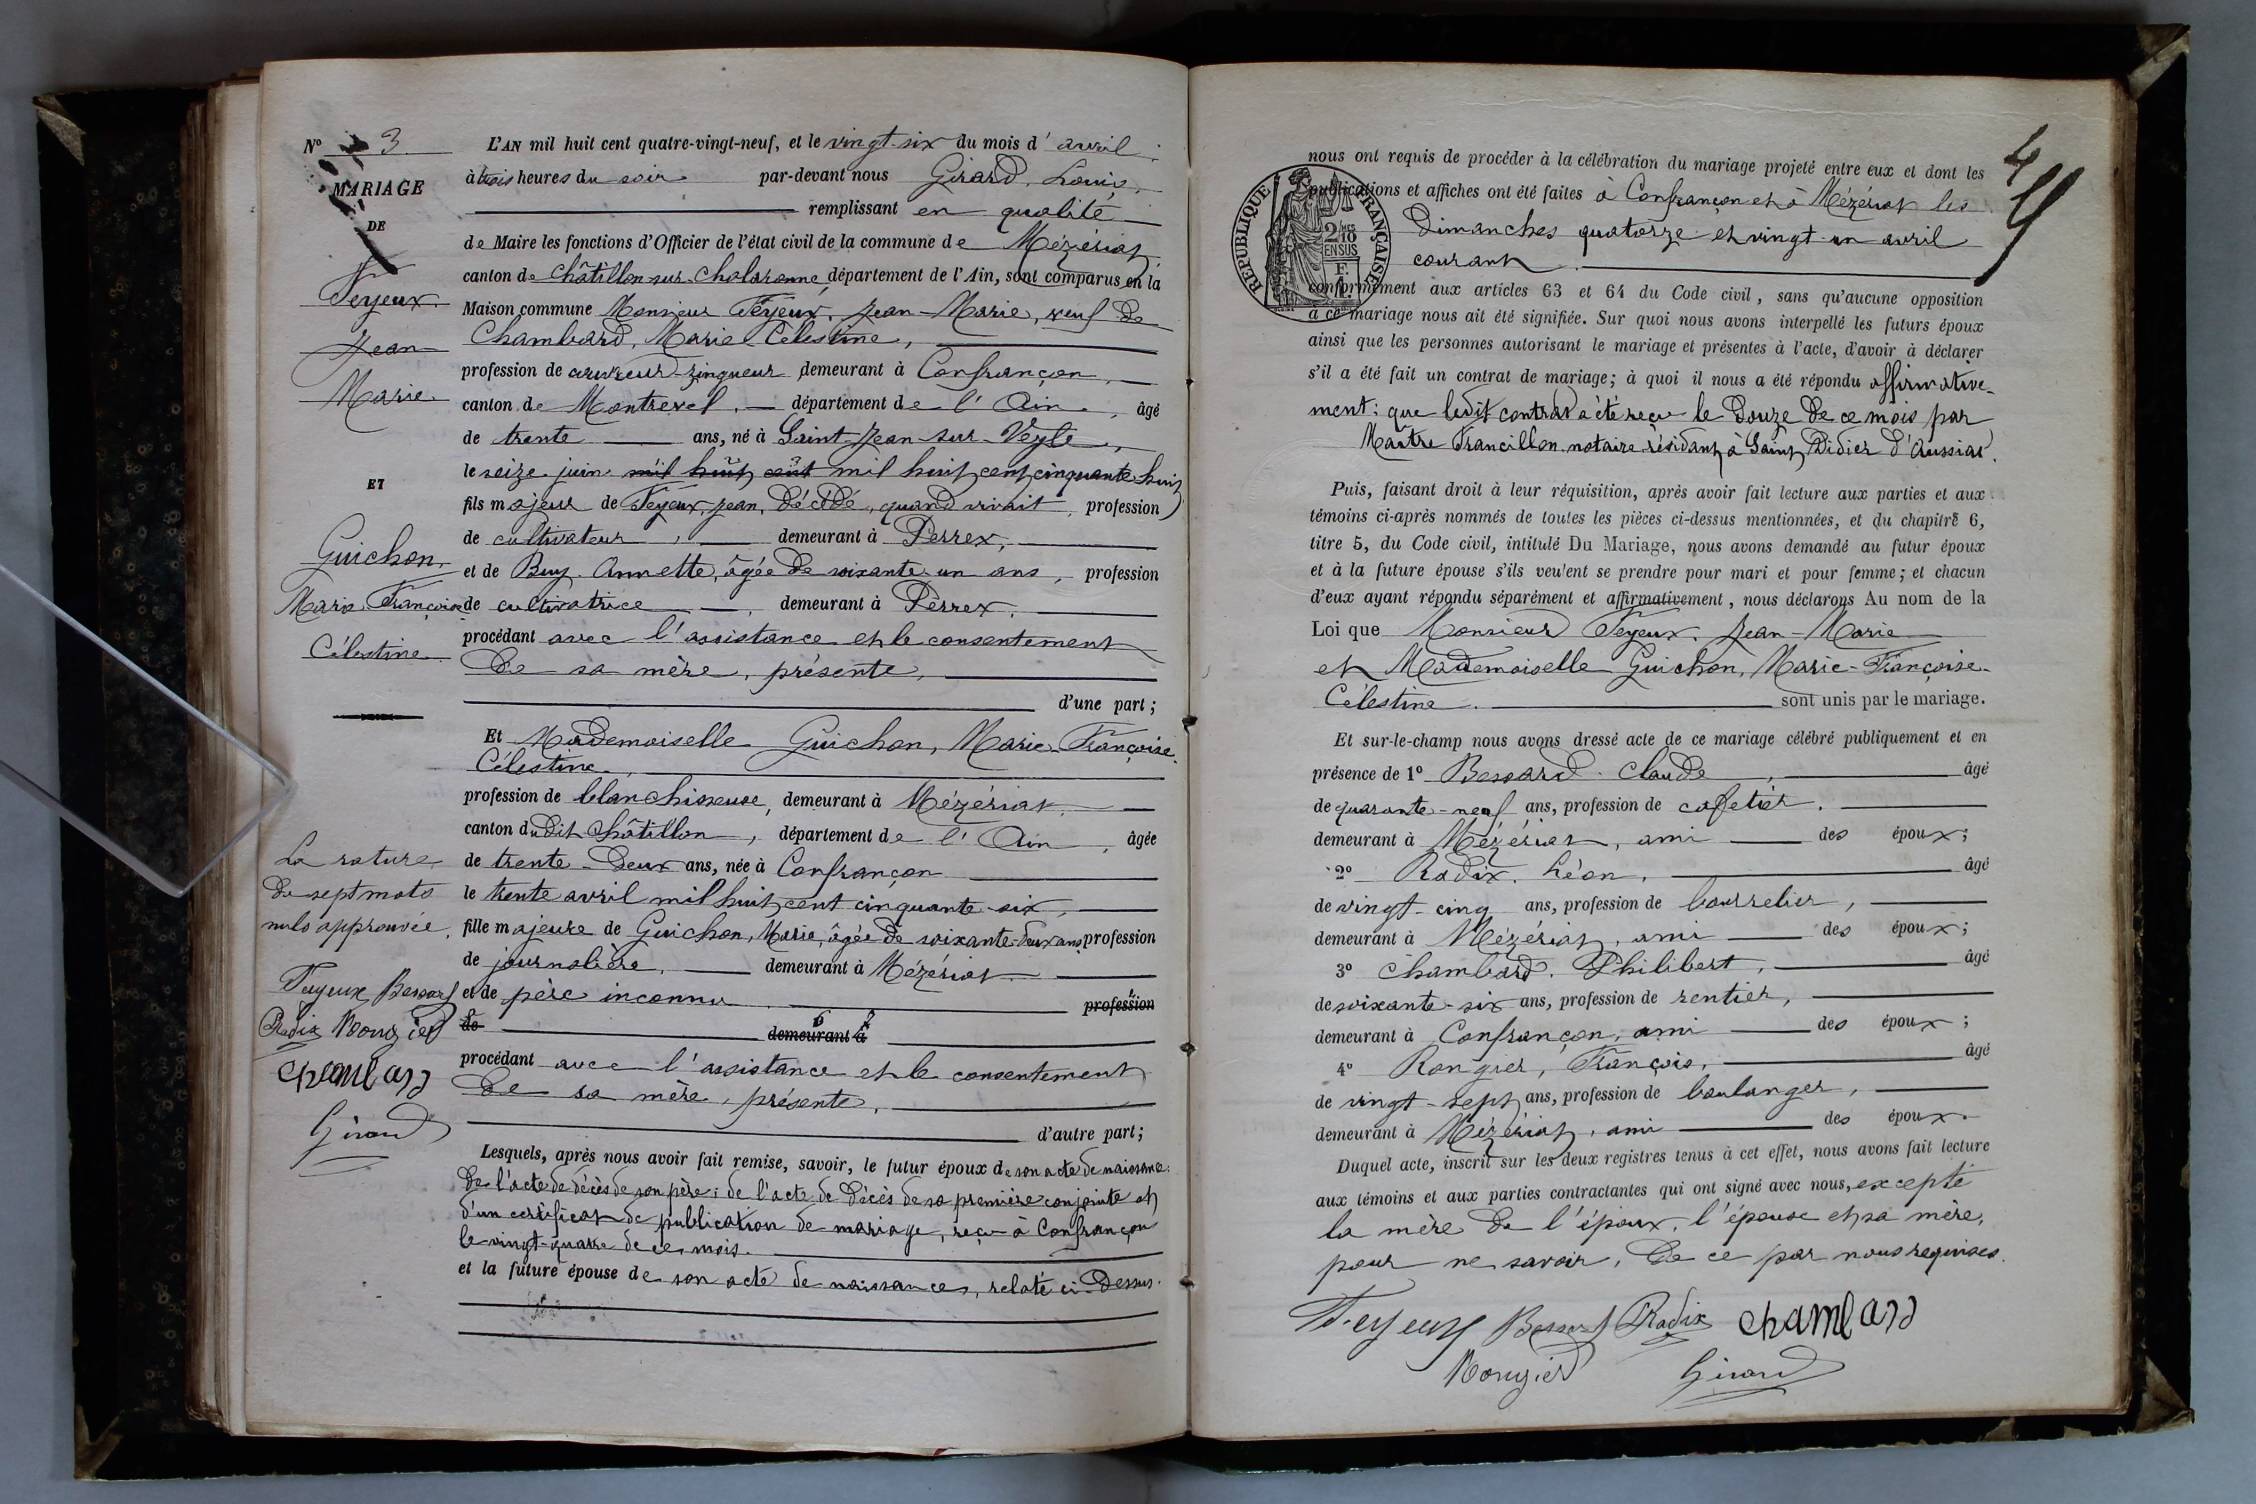 N° 3
MARIAGE
DE
Feyeux
Jean
Marie
ET
Guichon,
Marie Françoise
Célestine
La rature
de sept mots
nuls approuvée.
Feyeux Bessard
Radix Rongier
Chambard
Girard
L'AN mil huit cent quatre-vingt-neuf, et le vingt-six du mois d'avril
à trois heures du soir par-devant nous Girard, Louis,
remplissant en qualité
de Maire les fonctions d'Officier de l'état civil de la commune de Mézériat,
canton de Châtillon-sur-Chalaronne, département de l'Ain, sont comparus en la
Maison commune Monsieur Feyeux, Jean-Marie, veuf de
Chambard, Marie-Célestine,
profession de couvreur-zingueur, demeurant à Confrançon,
canton de Montrevel, département de l'Ain, âgé
de trente ans, né à Saint-Jean-sur-Veyle,
le seize juin mil huit cent mil huit cent cinquante huit
fils majeur de Feyeux, Jean, décédé, quand vivait, profession
de cultivateur, demeurant à Perrex,
et de Buy Annette, âgée de soixante-un ans, profession
de cultivatrice, demeurant à Perrex,
procédant avec l'assistance et le consentement
de sa mère, présente,
d'une part;
Et Mademoiselle Guichon, Marie-Françoise
Célestine,
profession de blanchisseuse, demeurant à Mézériat,
canton dudit Châtillon, département de l'Ain, âgée
de trente-deux ans, née à Confrançon
le trente avril mil huit cent cinquante-six,
fille majeure de Guichon, Marie, âgée de soixante-deux ans profession
de journalière, demeurant à Mézériat
et de père inconnu profession
de demeurant à
procédant avec l'assistance et le consentement
de sa mère, présente,
d'autre part;
Lesquels, après nous avoir fait remise, savoir, le futur époux de son acte de naissance;
de l'acte de décès de son père; de l'acte de décès de sa première conjointe et
d'un certificat de publication de mariage, reçu à Confrançon
le vingt-quatre de ce mois.
et la future épouse de son acte de naissance, relaté ci-dessus.
4
nous ont requis de procéder à la célébration du mariage projeté entre eux et dont les
publications et affiches ont été faites à Confrançon et à Mézériat les
Dimanches quatorze et vingt-un avril
courant
RÉPUBLIQUE FRANÇAISE
2/10
EN SUS
F.
conformément aux articles 63 et 64 du Code civil, sans qu'aucune opposition
à ce mariage nous ait été signifiée. Sur quoi nous avons interpellé les futurs époux
ainsi que les personnes autorisant le mariage et présentes à l'acte, d'avoir à déclarer
s'il a été fait un contrat de mariage; à quoi il nous a été répondu affirmative-
ment; que ledit contrat a été reçu le douze de ce mois par
Maître Francillon notaire résidant à Saint Didier d'Aussiat.
Puis, faisant droit à leur réquisition, après avoir fait lecture aux parties et aux
témoins ci-après nommés de toutes les pièces ci-dessus mentionnées, et du chapitre 6,
titre 5, du Code civil, intitulé Du Mariage, nous avons demandé au futur époux
et à la future épouse s'ils veulent se prendre pour mari et pour femme; et chacun
d'eux ayant répondu séparément et affirmativement, nous déclarons Au nom de la
Loi que Monsieur Feyeux, Jean-Marie
et Mademoiselle Guichon, Marie-Françoise-
Célestine sont unis par le mariage.
Et sur-le-champ nous avons dressé acte de ce mariage célébré publiquement et en
présence de 1° Bessard Claude, âgé
de quarante-neuf ans, profession de cafetier,
demeurant à Mézériat, ami des époux;
2° Radix, Léon, âgé
de vingt-cinq ans, profession de bourrelier,
demeurant à Mézériat, ami des époux;
3° Chambard, Philibert, âgé
de soixante-six ans, profession de rentier,
demeurant à Confrançon, ami des époux;
4° Rongier, François, âgé
de vingt-sept ans, profession de boulanger,
demeurant à Mézériat, ami des époux.
Duquel acte, inscrit sur les deux registres tenus à cet effet, nous avons fait lecture
aux témoins et aux parties contractantes qui ont signé avec nous, excepté
la mère de l'époux, l'épouse et sa mère,
pour ne savoir, de ce par nous requises.
Feyeux Bessard Radix Chambard
Rongier Girard